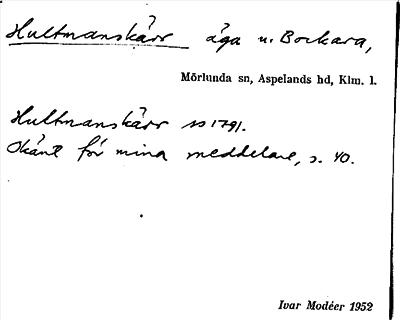 Hultmanskärr äga u. Bockara,
Mörlunda sn, Aspelands hd, Klm. l.
Hultmanskärr 1791.
Okänt för mina meddelare, s. 40.
Ivar Modéer 1952